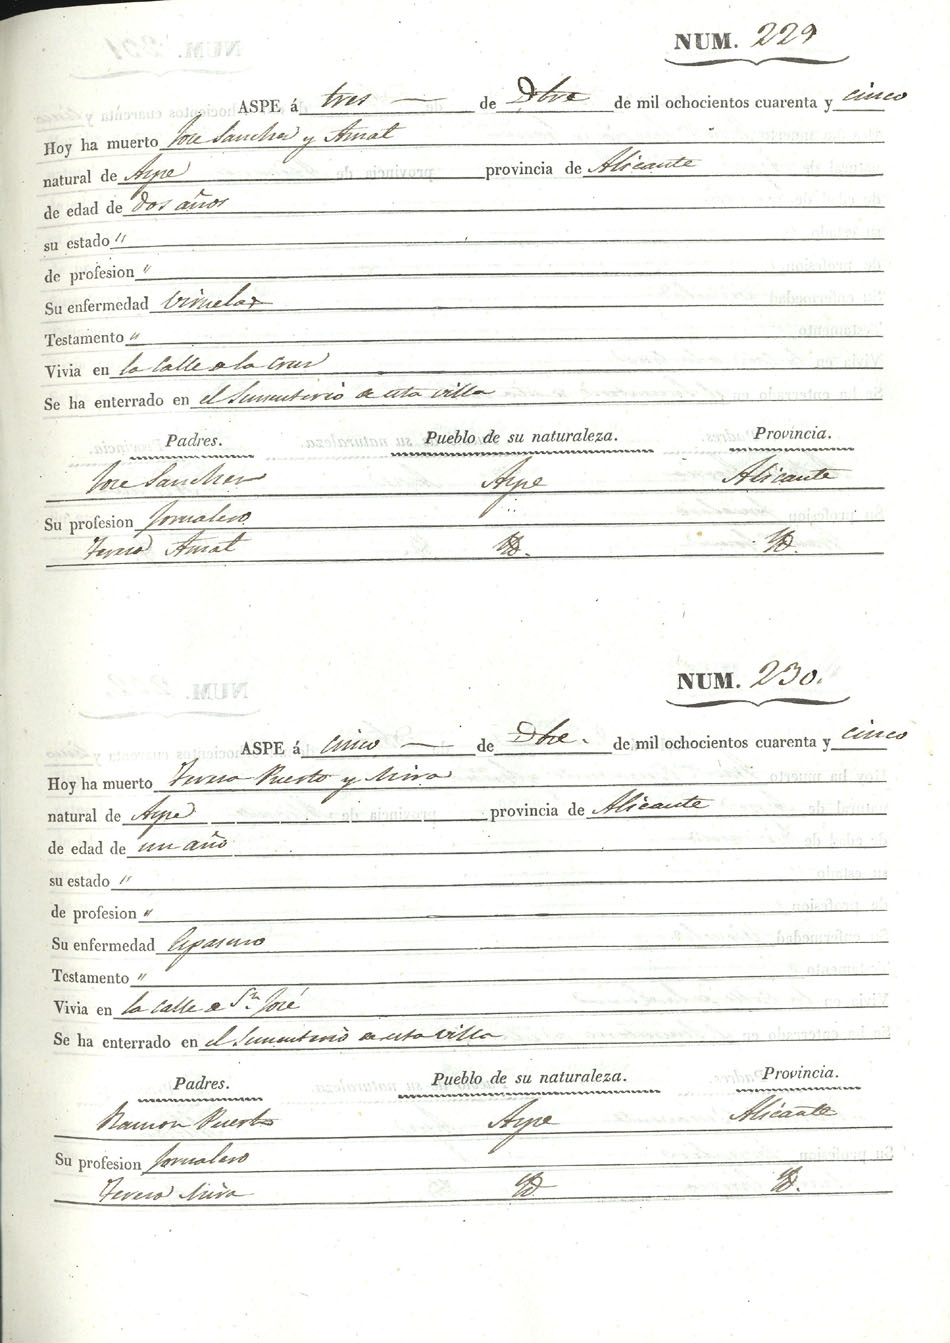 NUM. 229
ASPE á tres de Dbre de mil ochocientos cuarenta y cinco
Hoy ha muerto Jose Sanchez y Amat
natural de Aspe provincia de Alicante
de edad de dos años
su estado "
de profesion "
Su enfermedad viruelas
Testamento "
Vivia en la Calle de la Cruz
Se ha enterrado en el Sementerio de esta villa
Padres. Pueblo de su naturaleza. Provincia.
Jose Sanchez Aspe Alicante
Su profesion Jornalero
Teresa Amat Yd. Yd.
NUM. 230.
ASPE á cinco de Dbre. de mil ochocientos cuarenta y cinco
Hoy ha muerto Teresa Puerto y Mira
natural de Aspe provincia de Alicante
de edad de un año
su estado "
de profesion "
Su enfermedad Espasmo
Testamento "
Vivia en la Calle de Sn. José
Se ha enterrado en el Sementerio de esta villa
Padres. Pueblo de su naturaleza. Provincia.
Ramon Puerto Aspe Alicante
Su profesion Jornalero
Teresa Mira Yd Yd.